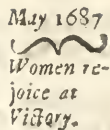 May 1687
Women re-
joice at
Victory.